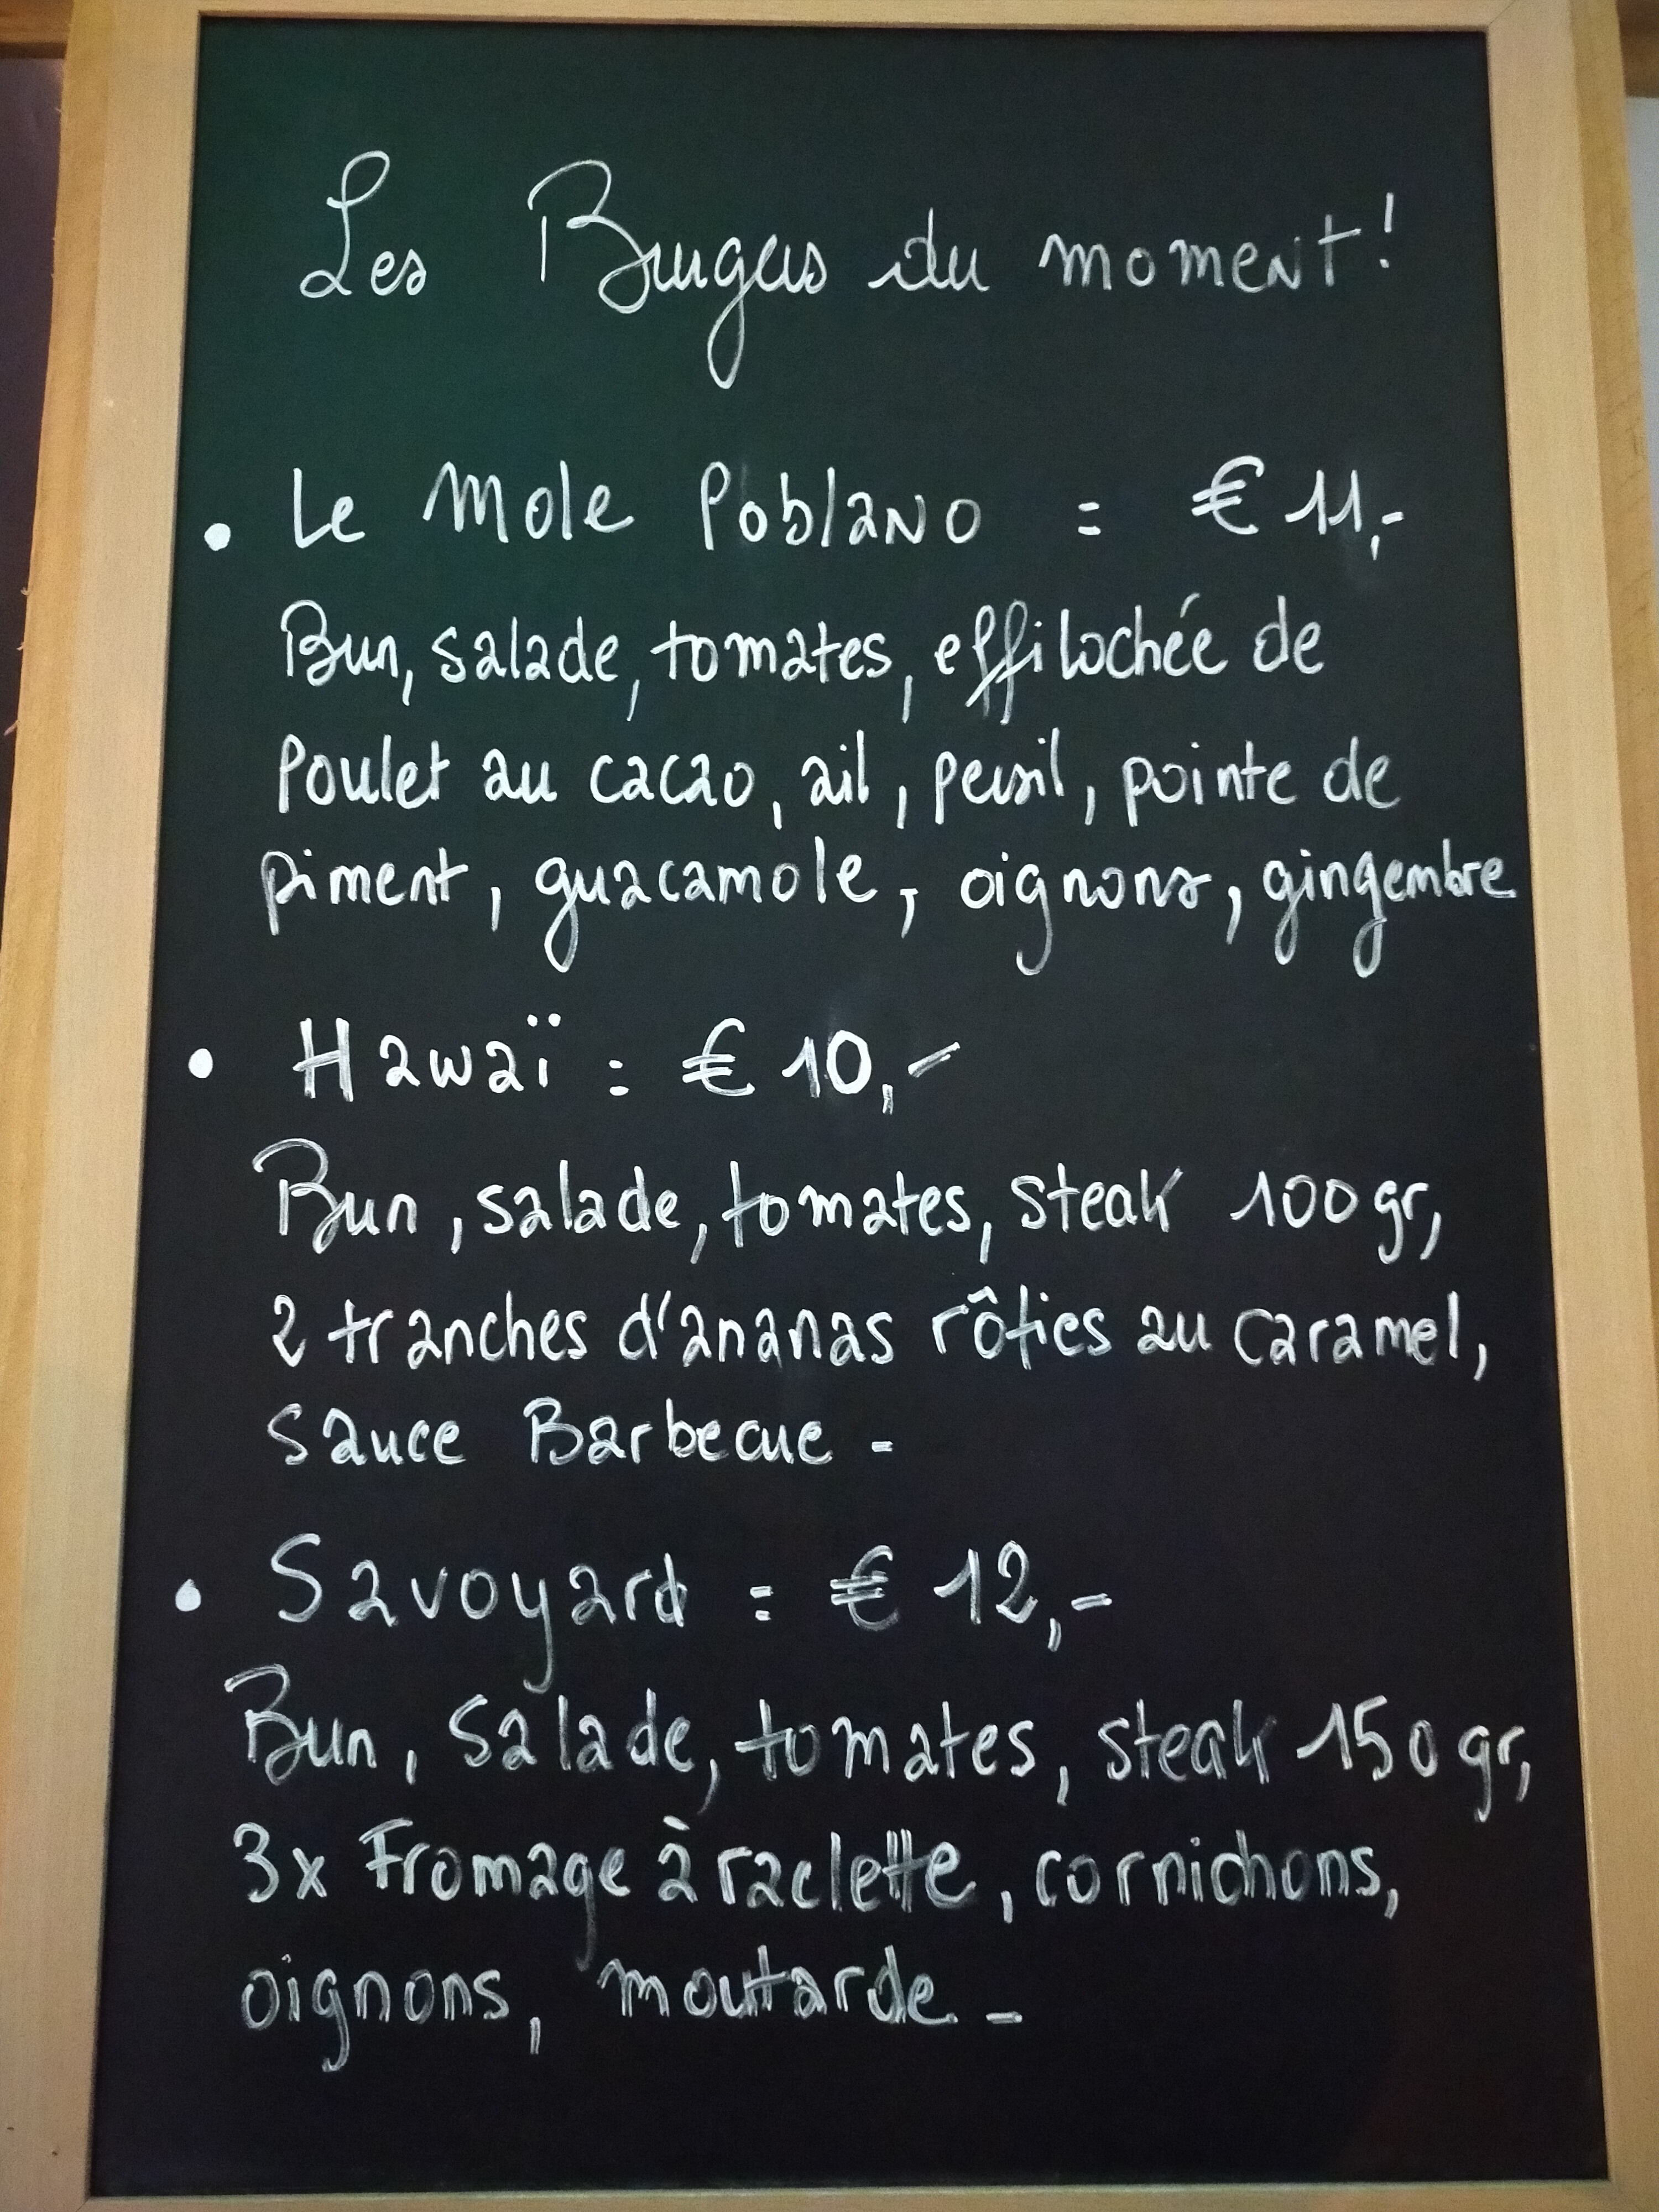 Les Burgers du moment!
• Le Mole Poblano = € 11,-
Bun, salade, tomates, effilochée de
Poulet au cacao, ail, persil, pointe de
piment, guacamole, oignons, gingembre
• Hawaï : € 10,-
Bun, salade, tomates, steak 100gr,
2 tranches d'ananas rôties au caramel,
sauce Barbecue -
• Savoyard = € 12,-
Bun, salade, tomates, steak 150gr,
3x Fromage à raclette, cornichons,
oignons, moutarde -